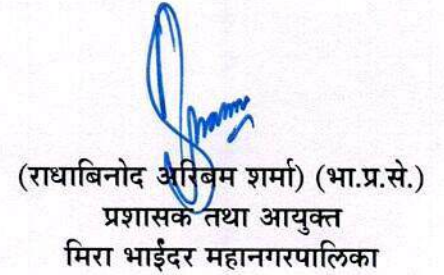 (राधाबिनोद अरिबम शर्मा) (भा.प्र.से.)
प्रशासक तथा आयुक्त
मिरा भाईंदर महानगरपालिका